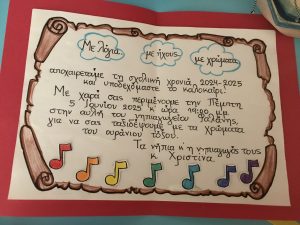 Με λόγια με ήχους με χρώματα
αποχαιρετάμε τη σχολική χρονιά, 2024-2025
και υποδεχόμαστε το καλοκαίρι.
Με χαρά σας περιμένουμε την Πέμπτη
5 Ιουνίου 2025 κ ώρα μμ
στην αυλή του νηπιαγωγείου
για να σας ταξιδέψουμε με τα χρώματα
του ουράνιου τόξου.
Τα νήπια κ' η νηπιαγωγός τους
κ Χριστίνα.